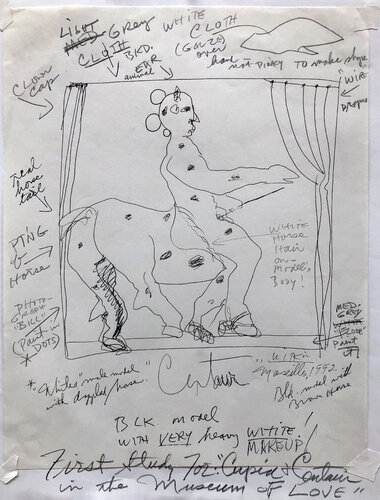 LIGHT GREY WHITE
MED. CLOTH
CLOTH BKD. (GAUZE)
over
EAR
animal
had NOT PINKY TO make shape
CLOWN
CAP
"WIRE
DRAPES
real
horse
tail
PT'NG
of
HORSE
WHITE
HORSE
HAIR
on
MODEL'S
BODY!
PHOTO-
GRAPH
"BKC"
Paint in
DOTS
MED.
GREY
WHITE
FLOOR
Paint
IT
*"White" male model
with dapple horse.
Centaur
WITKIN
Marseille, 1992
Blk. model with
Brown Horse
BLK MODEL
WITH VERY heavy WHITE
MAKEUP!
First Study For: "Cupid & Centaur
in the Museum of LOVE"